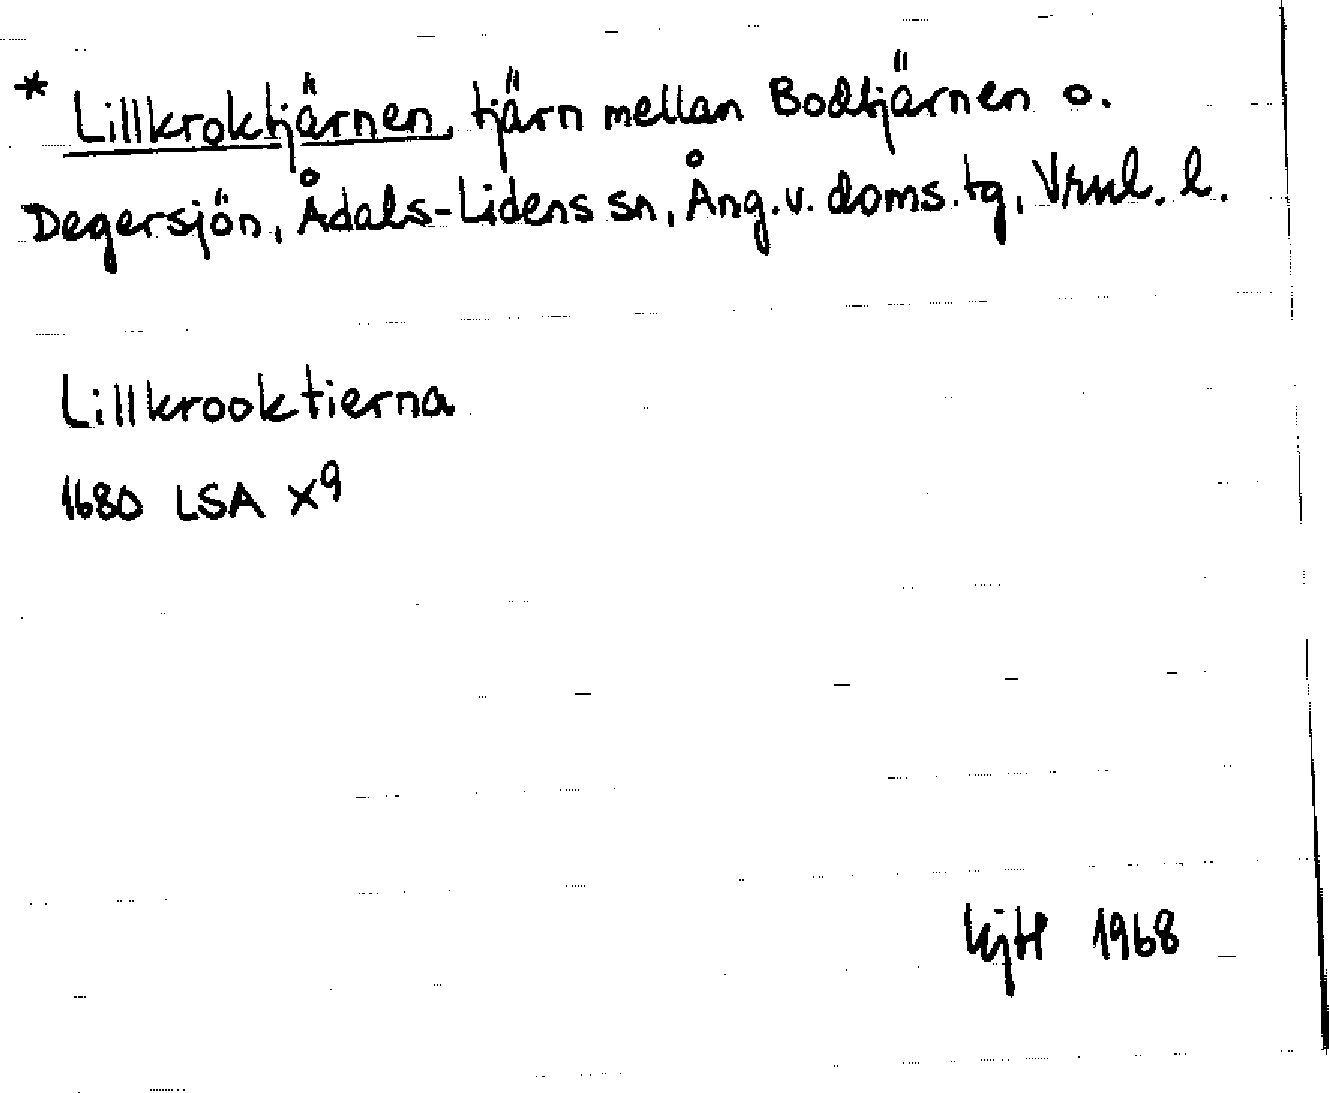 * Lillkroktjärnen, tjärn mellan Bodtjärnen o.
Degersjön, Ådals-Lidens sn, Ång.v. doms.tg, Vrnl. l.
Lillkrooktierna
1680 LSA X9
KjH 1968